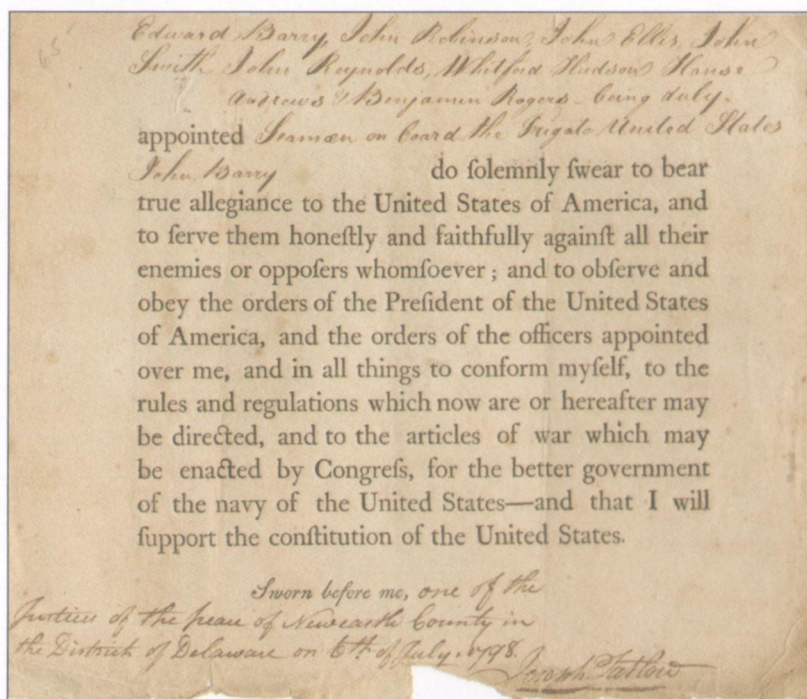 65
Edward Barry, John Robinson, John Ellis, John
Smith, John Reynolds, Whitford Hudson Hanse
Andrews & Benjamin Rogers being duly
appointed Seamen on board the Frigate United States
John Barry do ſolemnly ſwear to bear
true allegiance to the United States of America, and
to ſerve them honeſtly and faithfully againſt all their
enemies or oppoſers whomſoever; and to obſerve and
obey the orders of the Preſident of the United States
of America, and the orders of the officers appointed
over me, and in all things to conform myſelf, to the
rules and regulations which now are or hereafter may
be directed, and to the articles of war which may
be enacted by Congreſs, for the better government
of the navy of the United States—and that I will
ſupport the conſtitution of the United States.
Sworn before me, one of the
Justices of the peace of Newcastle County in
the District of Delaware on 6th of July 1798.
Joseph Tatlow